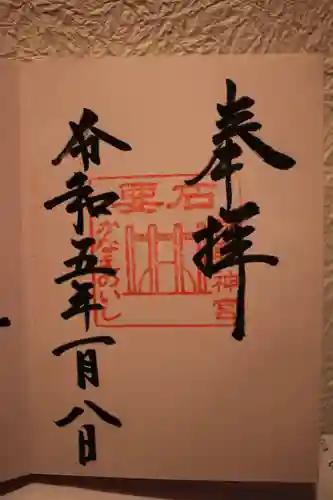 奉拝
石要
神宮
かなめいし
令和五年一月八日